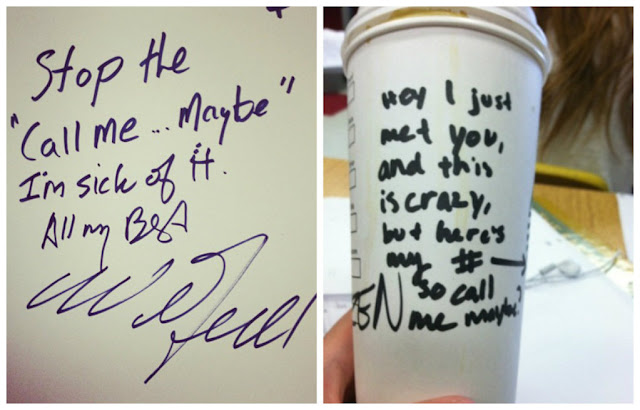 Stop the
"Call me... Maybe"
I'm sick of it.
All my Best
Hey I just
met you,
and this
is crazy,
but here's
my # →
so call
me maybe?